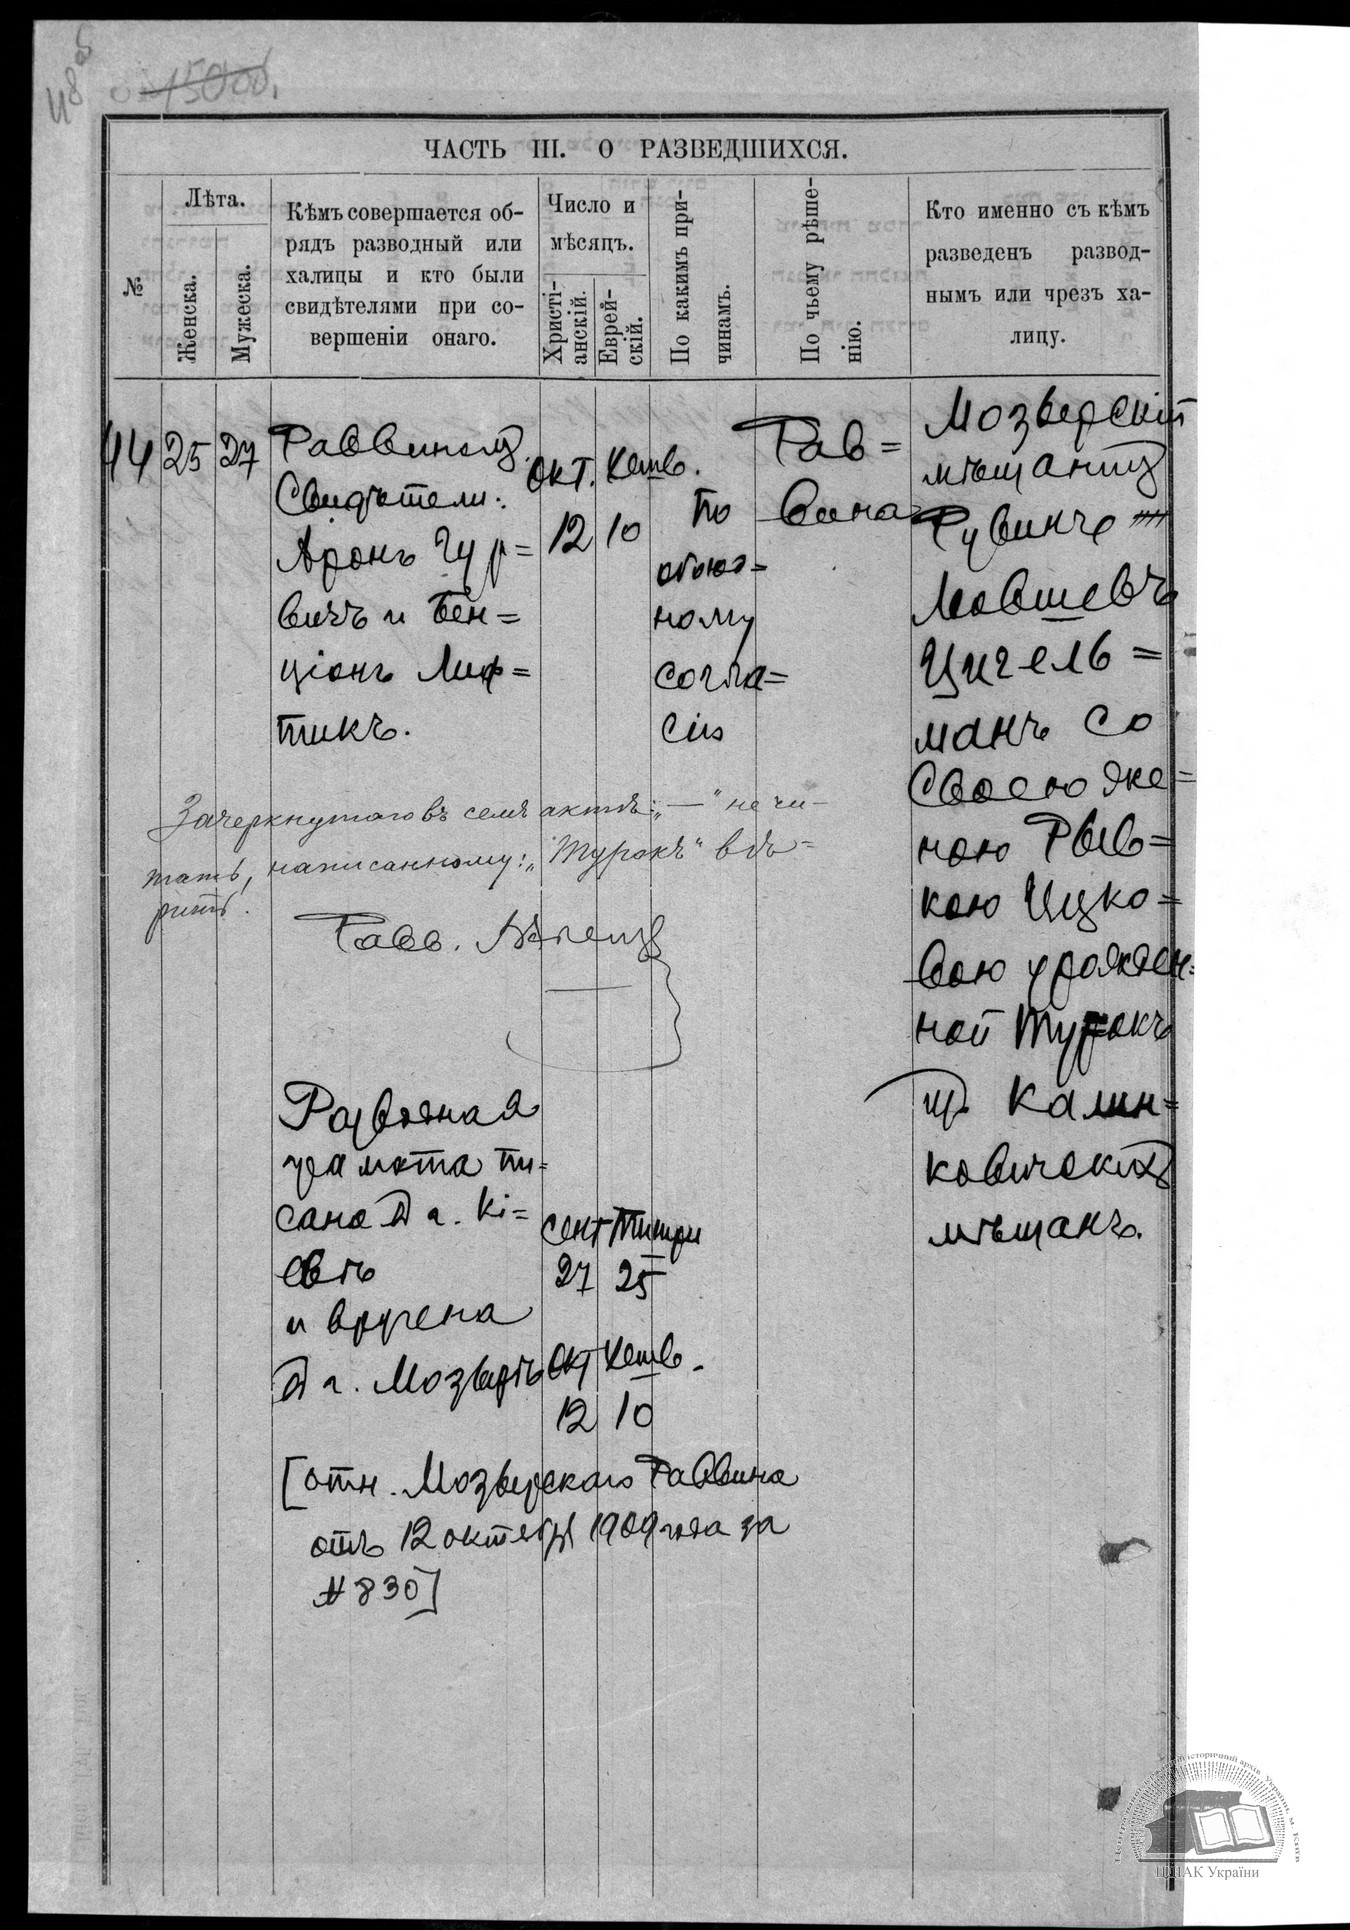 48 об
ЧАСТЬ III. О РАЗВЕДШИХСЯ.
№
Лѣта.
Женска.
Мужеска.
Кѣмъ совершается об-
рядъ разводный или
халицы и кто были
свидѣтелями при со-
вершеніи онаго.
Число и
мѣсяцъ.
Христі-
анскій.
Еврей-
скій.
По какимъ при-
чинамъ.
По чьему рѣше-
нію.
Кто именно съ кѣмъ
разведенъ развод-
нымъ или чрезъ ха-
лицу.
44
25
27
Раввиномъ.
Свидѣтели:
Аронъ Гур=
вичъ и Бен=
ціонъ Лиф=
шикъ.
Окт.
12
Хешв.
10
По
обоюд=
ному
согла=
сію
Рав=
вина
Мозырскій
мѣщанинъ
Рувинъ
Мовшевъ
Цигель=
манъ со
своею же=
ною Рыв=
кою Ицко=
вою урожден=
ной Турокъ
изъ Калин=
ковичскихъ
мѣщанъ.
Зачеркнутаго въ семъ актѣ: „—" не чи-
тать, написанному: „Турокъ" вѣ=
рить.
Равв.
Разводная
грамота пи=
сана въ г. Кі=
евѣ
Сент
27
Тишри
25
и вручена
въ г. Мозырѣ
Окт
12
Хешв.
10
[отн. Мозырскаго Раввина
отъ 12 октября 1909 года за
№ 830]
Центральний державний історичний архів України, м. Київ
ЦДІАК України